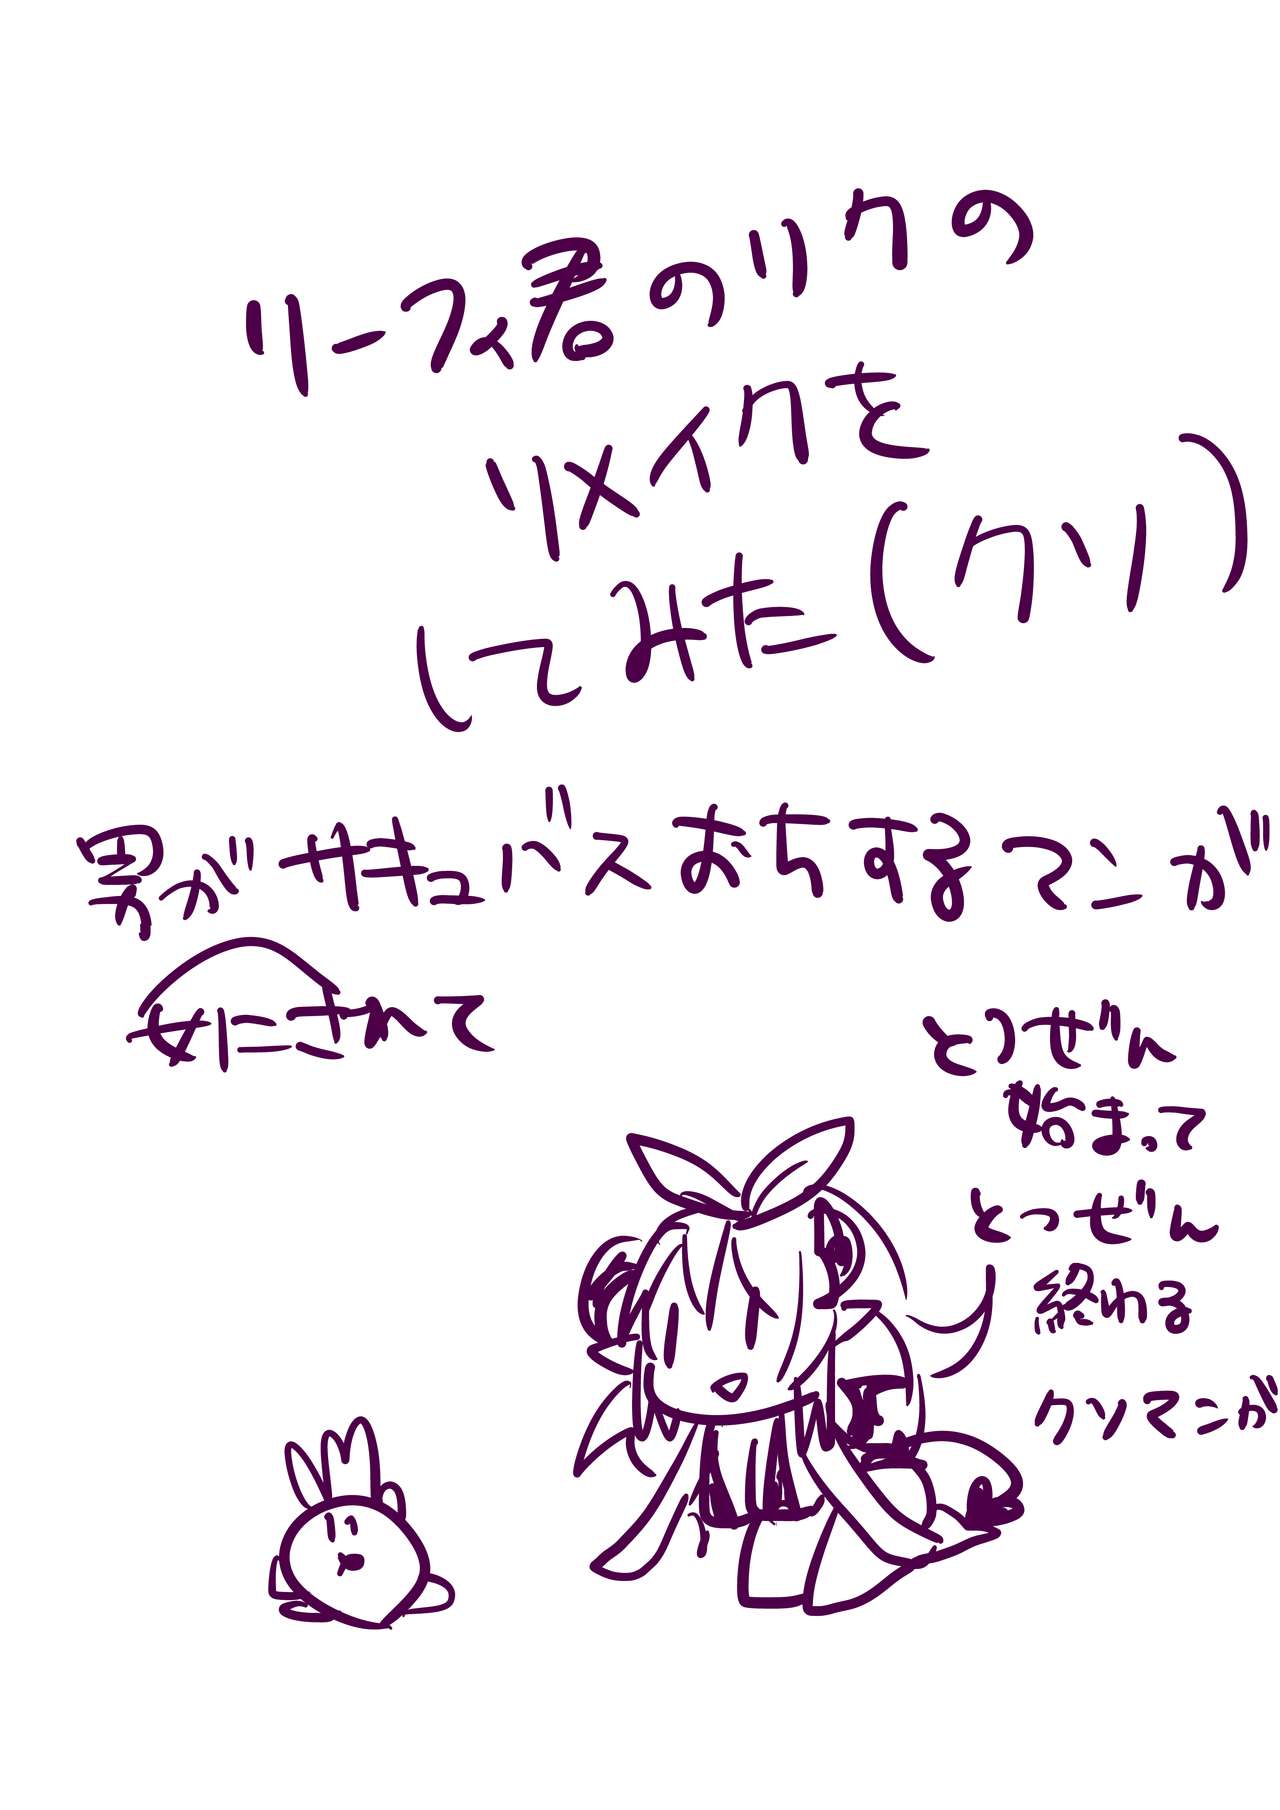 リーフィ君のリクの
リメイクを
してみた(クソ)
男がサキュバスおちするマンガ
女にされて
とつぜん
始まって
とつぜん
終わる
クソマンガ